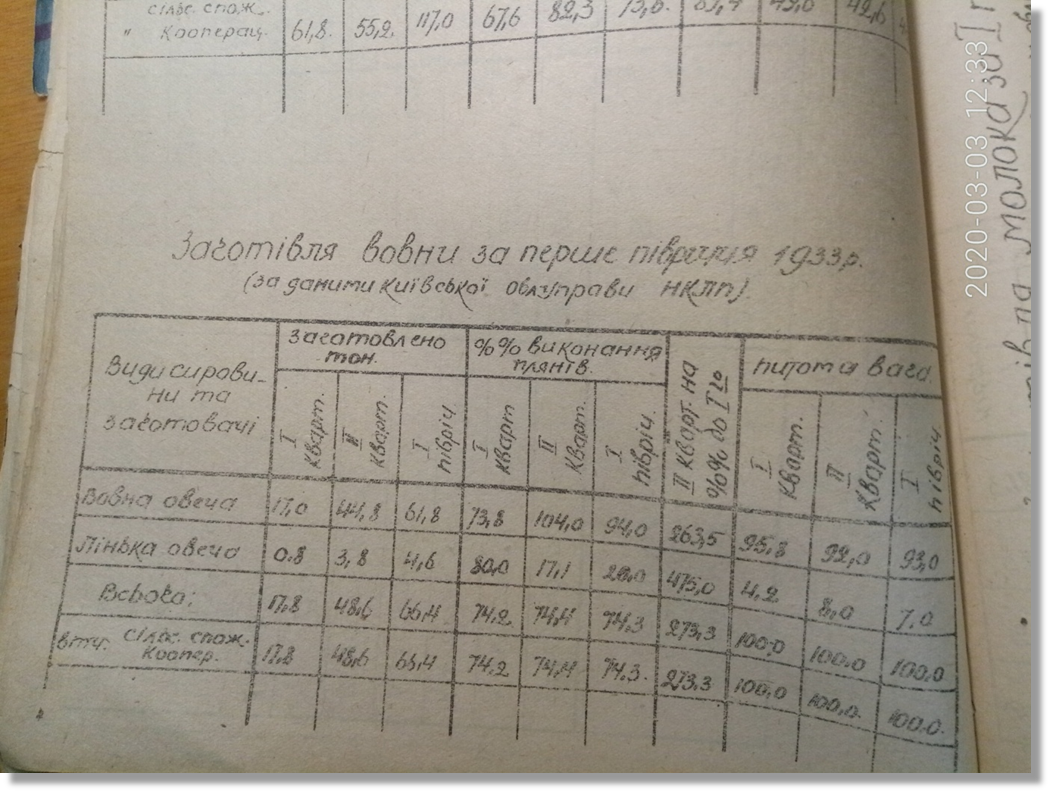 сільс. спож.
" Кооперац. 61,8. 55,2. 117,0 67,6 82,3
Заготівля вовни за перше півріччя 1933р.
(за даними Київської облуправи НКЛП).
Види сирови-
ни та
заготовачі
Заготовлено
тон.
%% виконання
плянів.
II кварт. на
%% до I го
питома вага.
I кварт. II кварт. I півріч. I кварт II кварт. I півріч. I кварт. II кварт. I півріч.
Вовна овеча 17,0 44,8 61,8 73,8 104,0 94,0 263,5 95,8 92,0 93,0
Лінька овеча 0.8 3,8 4,6 80,0 17,1 20,0 475,0 4,2 8,0 7,0
Всього: 17,8 48,6 66,4 74,2 74,4 74,3 273,3 100,0 100,0 100,0
вт.ч. сільс. спож.
Коопер. 17,8 48,6 66,4 74,2 74,4 74,3. 273,3 100,0 100,0. 100.0.
молока за I п
2020-03-03 12:33